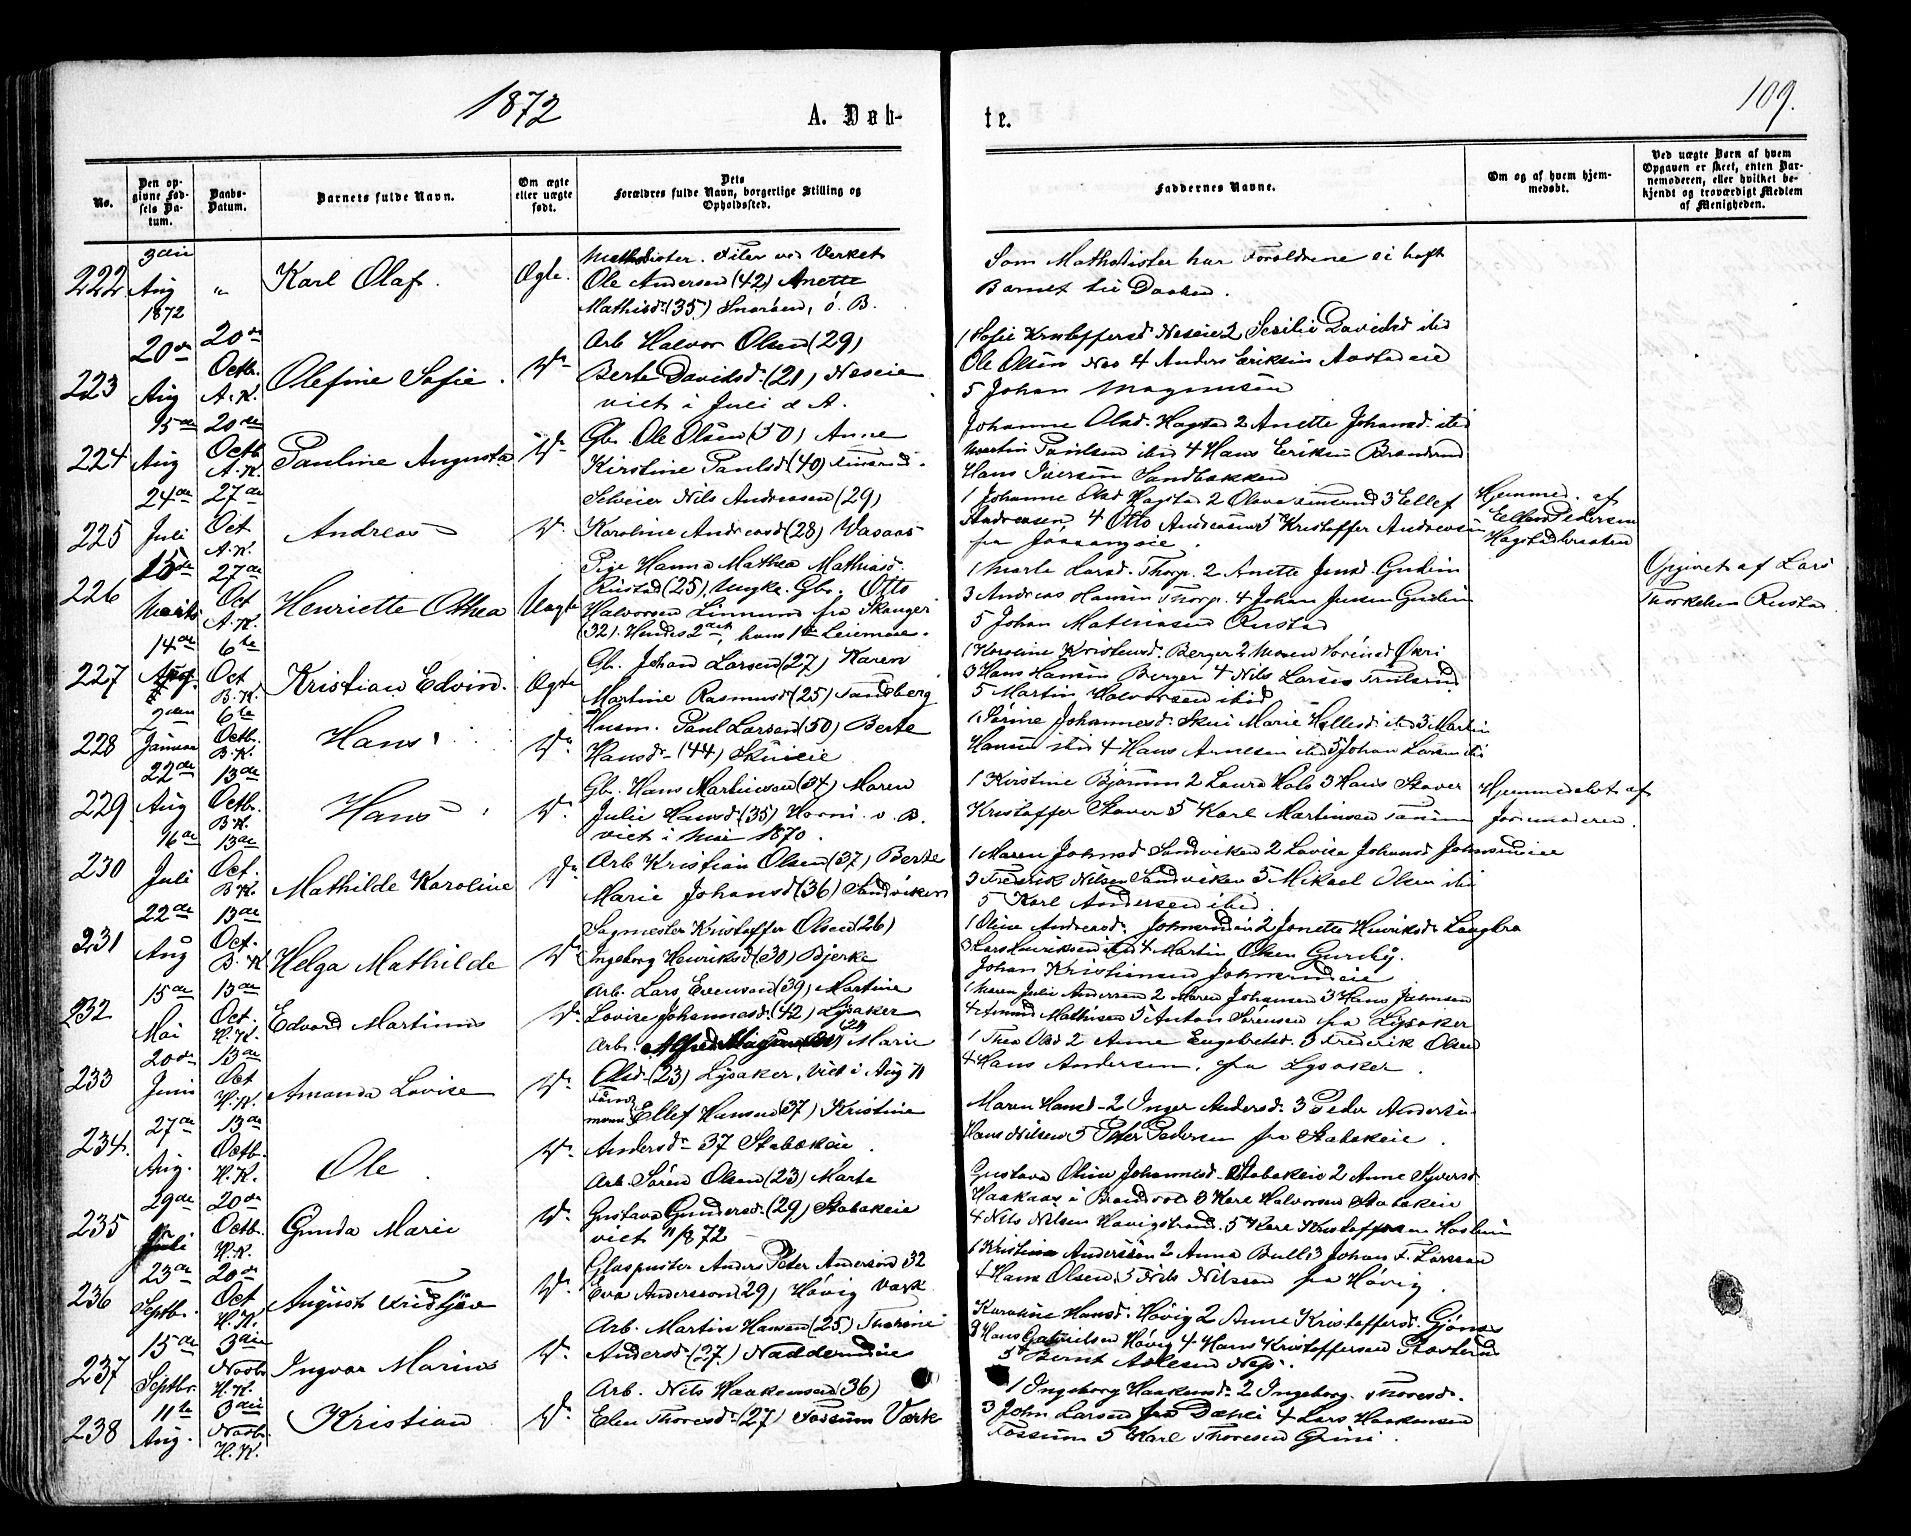 1872
A. Døb-
te.
109.
No.
Den op-
givne Fød-
sels Da-
tum.
Daabs-
Datum.
Barnets fulde Navn.
Om ægte
eller uægte
født.
Dets
Forældres fulde Navn, borgerlige Stilling og
Opholdssted.
Faddernes Navne.
Om og af hvem hjem-
medøbt.
Ved uægte Børn af hvem
Opgaven er skeet, enten Bar-
nemoderen, eller hvilket be-
kjendt og troværdigt Medlem
af Menigheden.
222
3die
Aug
1872
"
Karl Olaf.
Ægte.
Methodister. Filer ved Verket
Ole Andersen (42) Anette
Mathisd. (35) Snarøen, ö. B.
Som Methodister har Forældrene ei haft
Barnet til Daaben.
223
20de
Aug
20de
Octb.
A.K.
Olefine Sofie.
Do
Arb Halvor Olsen (29)
Berte Davidsd. (21) Neseie
viet i Juli d A.
1 Sofie Kristoffersd Neseie 2 Serilie Davidsd ibid
Ole Olsen Nes 4 Anders Eriksen
5 Johan Magnusen
224
15de
Aug
20de
Octb
A.K.
Pauline Augusta
Do
Gb. Ole Olsen (50) Anne
Kirstine Paulsd (40)
Johanne Olsd. Hagstad 2 Anette Johansd. ibid
Martin Paulsen ibid 4 Hans Eriksen
Hans Iversen Sandbakken
225
24de
Juli
27de
Oct
A.K.
Andreas
Do
Selveier Nils Andreasen (29)
Karoline Andreasd (28) Vasaas
1 Johanne Olsd Hagstad 2 Olava 3 Ellef
Andreasen 4 Otto Andreasen 5 Kristoffer Andreasen
fra
Hjemmed. af
Ellen Pedersen
Hagstadbraaten
226
15de
Marts
27de
Oct
A.K.
Henriette Othea
Uægte
Pige Hanna Mathea Mathiasd.
Rustad (25), Ungk. Gb. Otto
Halvorsen Linnerud fra Skauger
(32). Hendes 2det, hans 1te Leiermaal.
1 Marte Larsd. Thorp. 2 Anette Jensd. Gudim
3 Andreas Hansen Thorp. 4 Johan Jensen Gudim
5 Johan Mathiasen Rustad
Opgivet af Lars
Thorkelsen Rustad
227
14de
Aug.
6te
Oct
B.K.
Kristian Edvin.
Ægte
Gb. Johan Larsen (27) Karen
Martine Rasmusd (25) Sandberg
1 Karoline Kristensd. Berger 2 Maren Sørensd Økri
3 Hans Hansen Berger 4 Nils Larsen
5 Martin Halvorsen ibid
228
2den
Januar
6te
Octb.
B.K.
Hans
Do
Husm. Paul Larsen (50) Berte
Hansd. (44) Skuieie
1 Sørine Johannesd. Skui Marie Hellesd. ibid 3 Martin
Hansen ibid 4 Hans Arnesen ibid 5 Johan Larsen ibid
229
22de
Aug
13de
Octb.
B.K.
Hans
Do
Gb. Hans Martinsen (34) Maren
Julie Hansd. (35) Horni ö. B.
viet i Mai 1870.
1 Kristine Bjørum 2 Laura Holo 3 Hans Staver
Kristoffer Staver 5 Karl Martinsen Tanum
Hjemmedøbt af
Jormoderen.
230
16de
Juli
13de
Oct.
B.K.
Mathilde Karoline
Do
Arb Kristian Olsen (37) Berte
Marie Johansd (36) Sandviken
1 Maren Johnsd Sandviken 2 Lovise Johansd Johnsrudeie
3 Fredrik Nilsen Sandviken 5 Mikael Olsen ibid
5 Karl Andersen ibid.
231
22de
Aug
13de
Oct.
B.K
Helga Mathilde
Do
Sagmester Kristoffer Olsen (26)
Ingeborg Henriksd (30) Bjerke
1 Oline Andersd. Johnsrudeie 2 Janette Henriksd.
3 Lars Henriksen ibid 4 Martin Olsen Gurihy.
Johan Kristiansen Johnsrudeie
232
15de
Mai
13de
Oct.
H.K.
Edvard Martinus
Do
Arb. Lars Evensen (39) Martine
Lovise Johannesd. (42) Lysaker
1 Maren Julie Andersen 2 Maren Johansen 3 Hans Jahnsen
4 Amund Mathisen 5 Anton Sørensen fra Lysaker
233
20de
Juni
13de
Oct
H.K.
Amanda Lovise
Do
Arb. Alfred (24) Marie
Olsd. (23) Lysaker, viet i Aug 71
1 Thea Olsd 2 Anne Engebretsd. 3 Frederik Olsen
4 Hans Andersen, fra Lysaker.
234.
27de
Aug.
13de
Octb.
H.K.
Ole
Do
Tømmer-
mand Ellef Hansen (37) Kristine
Andersd. 37 Stabækeie.
Maren Hansd. 2 Inger Andersd. 3 Peder Andersen
Hans Nilsen 5 Peter Pedersen fra Stabækeie.
235
29de
Juli
20de
Octb.
H.K.
Gunda Marie
Do
Arb. Sören Olsen (23) Marte
Gustava Gundersd. (29) Stabækeie
viet 1872
Gustava Oline Johannesd. Stabækeie 2 Anne Syversd
Haakaas i Brandvold 3 Karl Halvorsen Stabækeie
4 Nils Nilsen Høvigstrand. 5 Karl Kristoffersen Haslum
236
23de
Septbr.
20de
Oct
H.K.
August Fridtjov
Do
Glaspuster Anders Peter Andersøn 32
Eva Anderssøn (29) Høvig Værk
1 Kristina Anderssøn 2 Anna Bull 3 Johan F. Larsson
4 Hans Olsen, 5 Nils Nilsson fra Høvig.
237
15de
Septbr.
3die
Novbr.
H.K.
Ingvar Marius
Do
Arb. Martin Hansen (25) Thorine
Andersd. (27) Nadderudeie
Karoline Hansd. Høvig 2 Anne Kristoffersd. Gjønnes
3 Hans Gabrielsen Høvig 4. Hans Kristoffersen
5 Bernt Aslesen Nes.
238
11te
Aug.
3die
Novbr.
H.K.
Kristian
Do
Arb. Nils Haakensen (36)
Elen Thoresd. (27) Fossum Værk
1 Ingeborg Haakensd. 2 Ingeborg Thoresd.
3 John Larsen fra Dæhli 4 Lars Haakensen
Fossum 5 Karl Thoresen Grini.